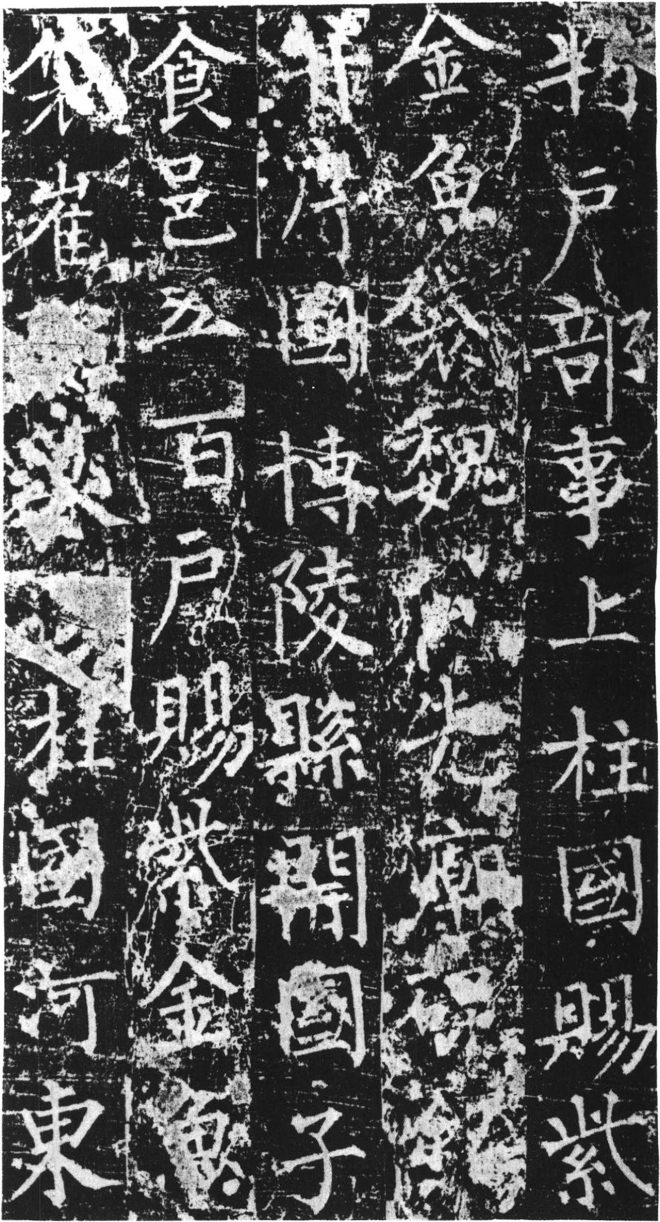 判戶部事上柱國賜紫
金魚袋魏先廟碑
并序國博陵縣開國子
食邑五百戶賜紫金魚
袋崔柱國河東